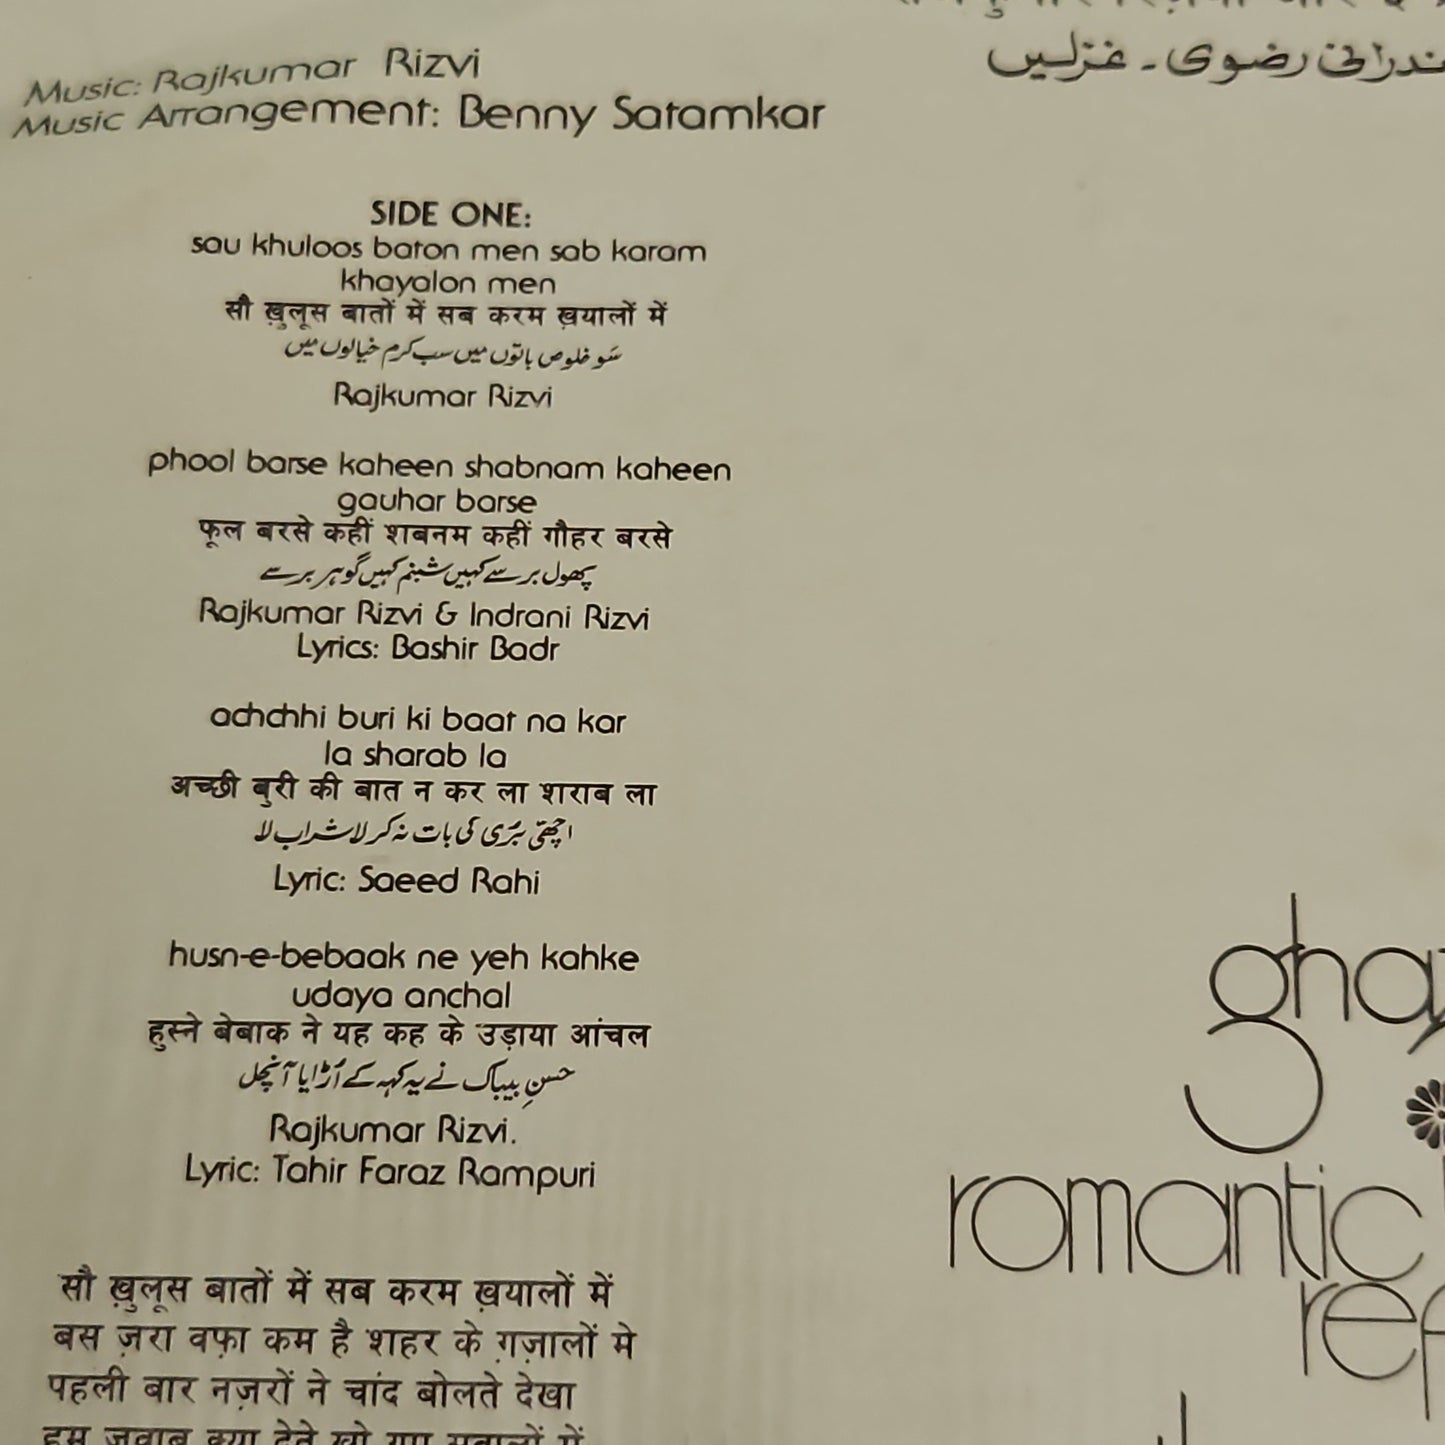 Music: Rajkumar Rizvi
Music Arrangement: Benny Satamkar
رضوی - غزلیں
SIDE ONE:
sau khuloos baton men sab karam
khayalon men
सौ ख़ुलूस बातों में सब करम ख़यालों में
سَو خلوص باتوں میں سب کرم خیالوں میں
Rajkumar Rizvi
phool barse kaheen shabnam kaheen
gauhar barse
फूल बरसे कहीं शबनम कहीं गौहर बरसे
پھول برسے کہیں شبنم کہیں گوہر برسے
Rajkumar Rizvi & Indrani Rizvi
Lyrics: Bashir Badr
achchhi buri ki baat na kar
la sharab la
अच्छी बुरी की बात न कर ला शराब ला
اچھّی بُری کی بات نہ کر لا شراب لا
Lyric: Saeed Rahi
husn-e-bebaak ne yeh kahke
udaya anchal
हुस्ने बेबाक ने यह कह के उड़ाया आंचल
حسنِ بیباک نے یہ کہہ کے اُڑایا آنچل
Rajkumar Rizvi.
Lyric: Tahir Faraz Rampuri
सौ ख़ुलूस बातों में सब करम ख़यालों में
बस ज़रा वफ़ा कम है शहर के ग़ज़ालों मे
पहली बार नज़रों ने चांद बोलते देखा
हम जवाब क्या देते खो गए सवालों में
ghaz
romantic
ref